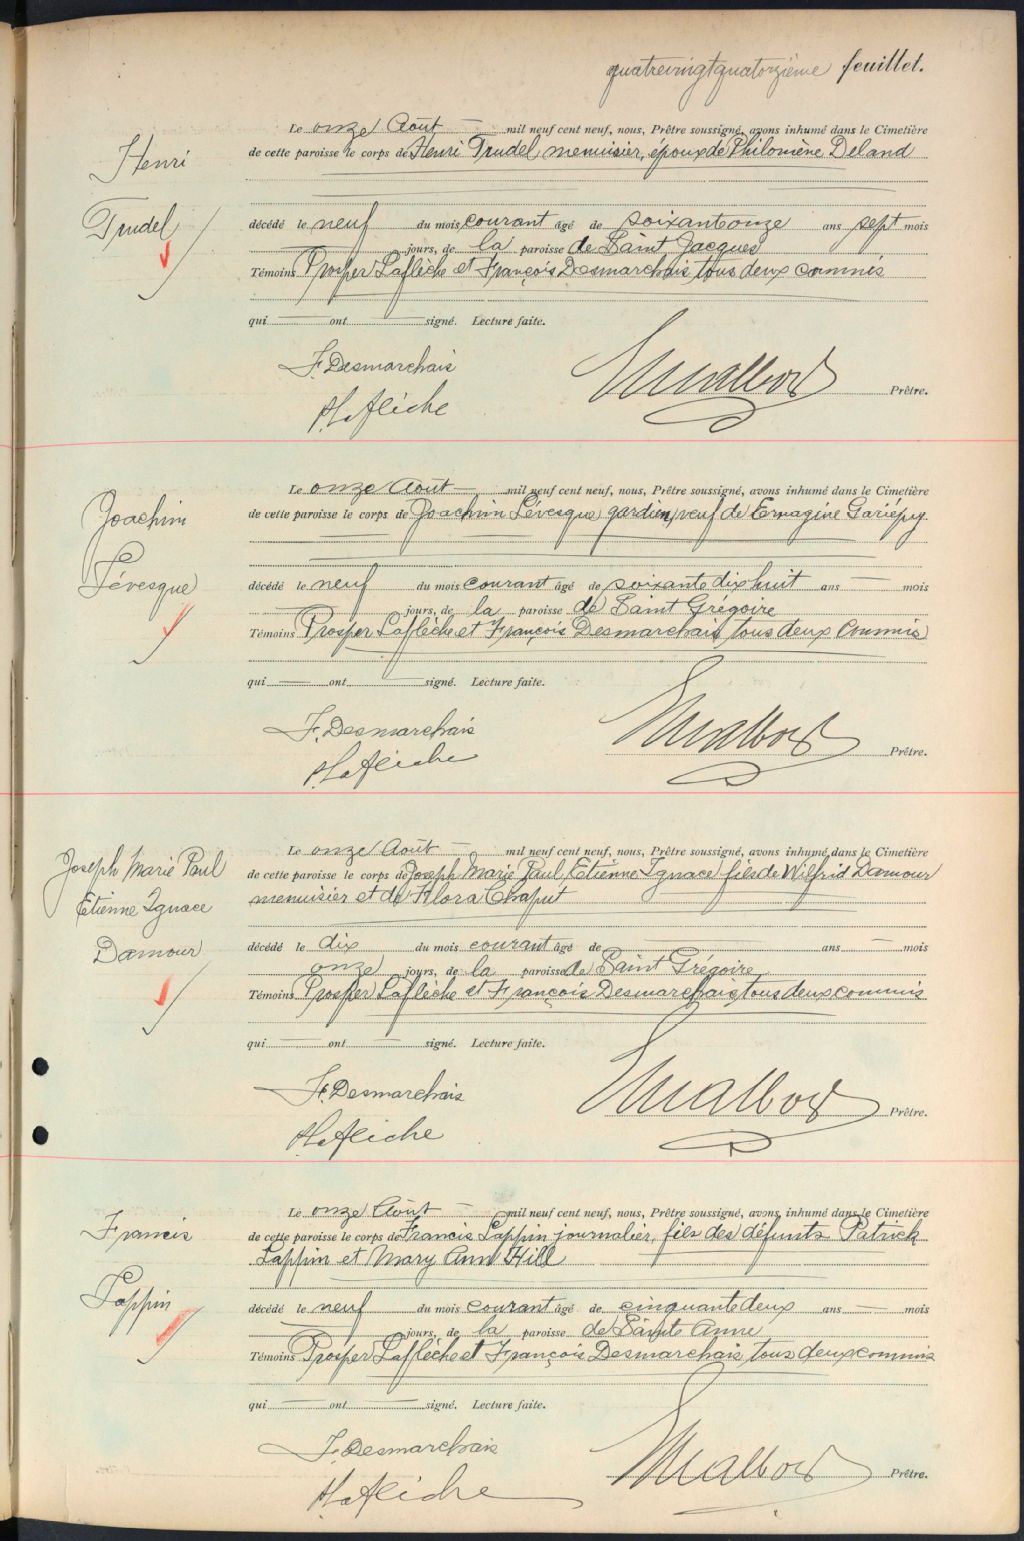 quatrevingtquatorzième feuillet.
Henri
Trudel
Le onze Août — mil neuf cent neuf, nous, Prêtre soussigné, avons inhumé dans le Cimetière
de cette paroisse le corps de Henri Trudel menuisier, époux de Philomène Deland
décédé le neuf du mois courant âgé de soixanteonze ans sept mois
jours, de la paroisse de Saint Jacques
Témoins Prosper Laflèche et François Desmarchais, tous deux commis
qui — ont — signé. Lecture faite.
F. Desmarchais
P. Laflèche
Prêtre.
Joachim
Lévesque
Le onze Août — mil neuf cent neuf, nous, Prêtre soussigné, avons inhumé dans le Cimetière
de cette paroisse le corps de Joachim Lévesque, gardien, veuf de Ermagine Gariépy.
décédé le neuf du mois courant âgé de soixante dix huit ans — mois
— jours, de la paroisse de Saint Grégoire
Témoins Prosper Laflèche et François Desmarchais, tous deux commis
qui — ont signé. Lecture faite.
F. Desmarchais
P. Laflèche
Prêtre.
Joseph Marie Paul
Etienne Ignace
Damour
Le onze Août — mil neuf cent neuf, nous, Prêtre soussigné, avons inhumé dans le Cimetière
de cette paroisse le corps de Joseph Marie Paul, Etienne Ignace fils de Wilfrid Damour
menuisier et de Flora Chaput
décédé le dix du mois courant âgé de — ans — mois
onze jours, de la paroisse de Saint Grégoire
Témoins Prosper Laflèche et François Desmarchais, tous deux commis
qui — ont — signé. Lecture faite.
F. Desmarchais
P. Laflèche
Prêtre.
Francis
Lappin
Le onze Août — mil neuf cent neuf, nous, Prêtre soussigné, avons inhumé dans le Cimetière
de cette paroisse le corps de Francis Lappin journalier, fils des défunts Patrick
Lappin et Mary Ann Hill
décédé le neuf du mois courant âgé de cinquante deux ans — mois
— jours, de la paroisse de Sainte Anne
Témoins Prosper Laflèche et François Desmarchais, tous deux commis
qui — ont — signé. Lecture faite.
F. Desmarchais
P. Laflèche
Prêtre.